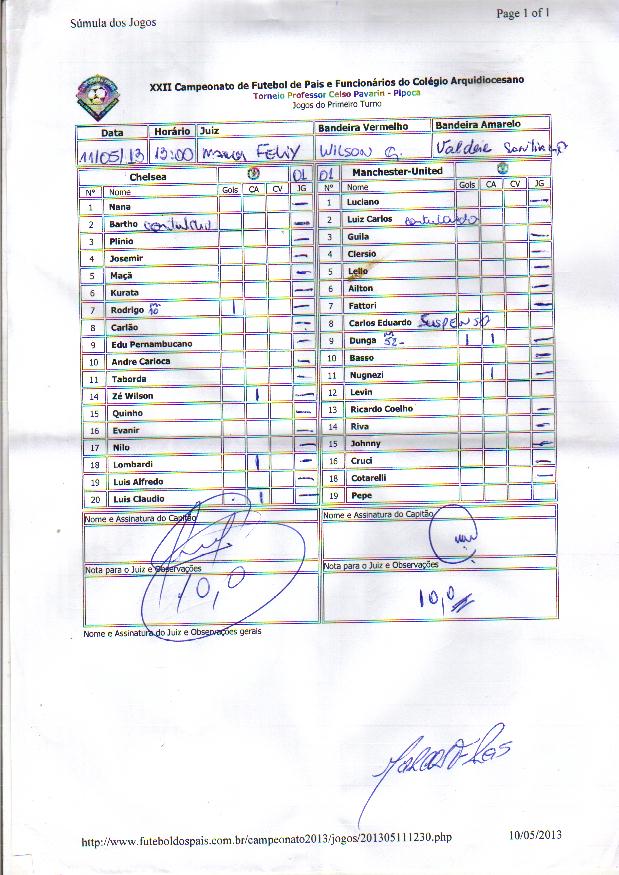 Súmula dos Jogos
Page 1 of 1
XXII Campeonato de Futebol de Pais e Funcionários do Colégio Arquidiocesano
Torneio Professor Celso Pavarin - Pipoca
Jogos do Primeiro Turno
Data Horário Juiz Bandeira Vermelho Bandeira Amarelo
11/05/13 13:00 Wilson G.
Chelsea 01 01 Manchester-United
Nº Nome Gols CA CV JG Nº Nome Gols CA CV JG
1 Nana — 1 Luciano —
2 Bartho — 2 Luiz Carlos contundido
3 Plinio — 3 Guila —
4 Josemir — 4 Clersio —
5 Maçã — 5 Lello —
6 Kurata — 6 Ailton —
7 Rodrigo I — 7 Fattori —
8 Carlão — 8 Carlos Eduardo SUSPENSO
9 Edu Pernambucano — 9 Dunga I I —
10 Andre Carioca — 10 Basso —
11 Taborda — 11 Nugnezi I —
14 Zé Wilson I — 12 Levin
15 Quinho — 13 Ricardo Coelho —
16 Evanir — 14 Riva —
17 Nilo — 15 Johnny —
18 Lombardi I — 16 Cruci —
19 Luis Alfredo — 18 Cotarelli —
20 Luis Claudio I — 19 Pepe
Nome e Assinatura do Capitão Nome e Assinatura do Capitão
Nota para o Juiz e Observações Nota para o Juiz e Observações
10,0 10,0
Nome e Assinatura do Juiz e Observações gerais
http://www.futeboldospais.com.br/campeonato2013/jogos/201305111230.php 10/05/2013